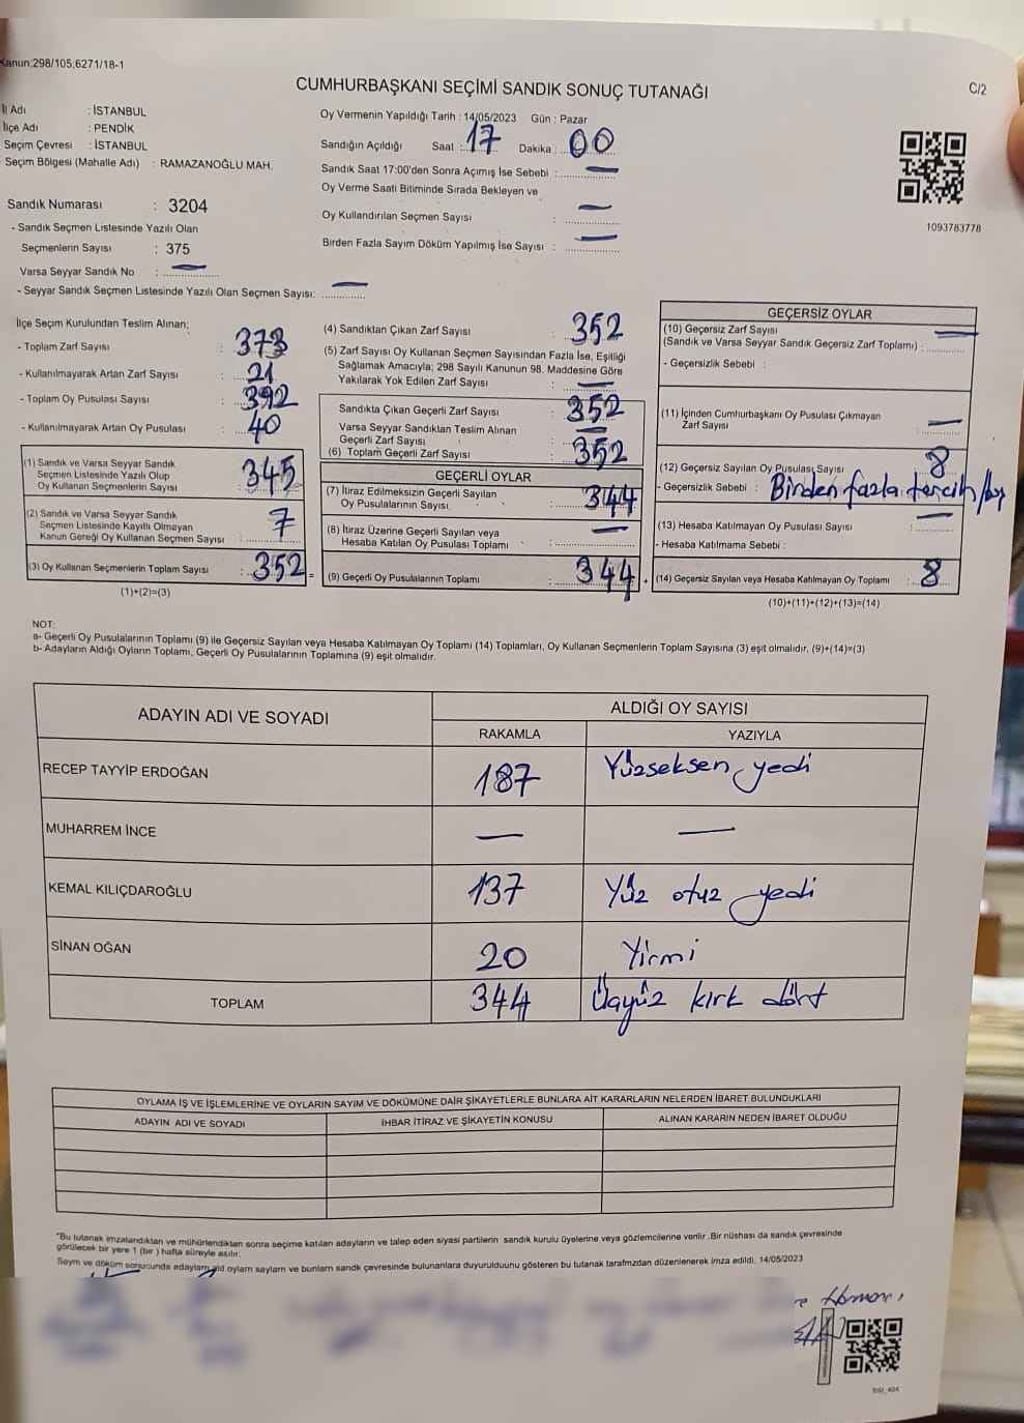 Kanun:298/105;6271/18-1
CUMHURBAŞKANI SEÇİMİ SANDIK SONUÇ TUTANAĞI
C/2
İl Adı : İSTANBUL
İlçe Adı : PENDİK
Seçim Çevresi : İSTANBUL
Seçim Bölgesi (Mahalle Adı) : RAMAZANOĞLU MAH.
Sandık Numarası : 3204
- Sandık Seçmen Listesinde Yazılı Olan
Seçmenlerin Sayısı : 375
Varsa Seyyar Sandık No : —
- Seyyar Sandık Seçmen Listesinde Yazılı Olan Seçmen Sayısı: —
Oy Vermenin Yapıldığı Tarih : 14/05/2023 Gün : Pazar
Sandığın Açıldığı Saat : 17 Dakika : 00
Sandık Saat 17:00'den Sonra Açımış İse Sebebi : —
Oy Verme Saati Bitiminde Sırada Bekleyen ve —
Oy Kullandırılan Seçmen Sayısı :
Birden Fazla Sayım Döküm Yapılmış İse Sayısı : —
1093783778
İlçe Seçim Kurulundan Teslim Alınan;
- Toplam Zarf Sayısı : 373
- Kullanılmayarak Artan Zarf Sayısı : 21
- Toplam Oy Pusulası Sayısı : 392
- Kullanılmayarak Artan Oy Pusulası : 40
(1) Sandık ve Varsa Seyyar Sandık
Seçmen Listesinde Yazılı Olup
Oy Kullanan Seçmenlerin Sayısı 345
(2) Sandık ve Varsa Seyyar Sandık
Seçmen Listesinde Kayıtlı Olmayan
Kanun Gereği Oy Kullanan Seçmen Sayısı : 7
(3) Oy Kullanan Seçmenlerin Toplam Sayısı : 352 =
(1)+(2)=(3)
(4) Sandıktan Çıkan Zarf Sayısı : 352
(5) Zarf Sayısı Oy Kullanan Seçmen Sayısından Fazla İse, Eşitliği
Sağlamak Amacıyla; 298 Sayılı Kanunun 98. Maddesine Göre
Yakılarak Yok Edilen Zarf Sayısı : —
Sandıkta Çıkan Geçerli Zarf Sayısı : 352
Varsa Seyyar Sandıktan Teslim Alınan
Geçerli Zarf Sayısı : —
(6) Toplam Geçerli Zarf Sayısı : 352
GEÇERLİ OYLAR
(7) İtiraz Edilmeksizin Geçerli Sayılan
Oy Pusulalarının Sayısı : 344
(8) İtiraz Üzerine Geçerli Sayılan veya
Hesaba Katılan Oy Pusulası Toplamı : —
(9) Geçerli Oy Pusulalarının Toplamı : 344
GEÇERSİZ OYLAR
(10) Geçersiz Zarf Sayısı
(Sandık ve Varsa Seyyar Sandık Geçersiz Zarf Toplamı) : —
- Geçersizlik Sebebi :
(11) İçinden Cumhurbaşkanı Oy Pusulası Çıkmayan
Zarf Sayısı : —
(12) Geçersiz Sayılan Oy Pusulası Sayısı : 8
- Geçersizlik Sebebi : Birden fazla tercih/boş
(13) Hesaba Katılmayan Oy Pusulası Sayısı : —
- Hesaba Katılmama Sebebi :
(14) Geçersiz Sayılan veya Hesaba Katılmayan Oy Toplamı : 8
(10)+(11)+(12)+(13)=(14)
NOT:
a- Geçerli Oy Pusulalarının Toplamı (9) ile Geçersiz Sayılan veya Hesaba Katılmayan Oy Toplamı (14) Toplamları, Oy Kullanan Seçmenlerin Toplam Sayısına (3) eşit olmalıdır, (9)+(14)=(3)
b- Adayların Aldığı Oyların Toplamı, Geçerli Oy Pusulalarının Toplamına (9) eşit olmalıdır.
ADAYIN ADI VE SOYADI
ALDIĞI OY SAYISI
RAKAMLA YAZIYLA
RECEP TAYYİP ERDOĞAN 187 Yüzseksen yedi
MUHARREM İNCE — —
KEMAL KILIÇDAROĞLU 137 Yüz otuz yedi
SİNAN OĞAN 20 Yirmi
TOPLAM 344 Üçyüz kırk dört
OYLAMA İŞ VE İŞLEMLERİNE VE OYLARIN SAYIM VE DÖKÜMÜNE DAİR ŞİKAYETLERLE BUNLARA AİT KARARLARIN NELERDEN İBARET BULUNDUKLARI
ADAYIN ADI VE SOYADI İHBAR İTİRAZ VE ŞİKAYETİN KONUSU ALINAN KARARIN NEDEN İBARET OLDUĞU
"Bu tutanak imzalandıktan ve mühürlendikten sonra seçime katılan adayların ve talep eden siyasi partilerin sandık kurulu üyelerine veya gözlemcilerine verilir .Bir nüshası da sandık çevresinde
görülecek bir yere 1 (bir ) hafta süreyle asılır.
Sayım ve döküm sonucunda adayların oyların sayıları ve bunların sandık çevresinde bulunanlara duyurulduğunu gösteren bu tutanak tarafımzdan düzenlenerek imza edildi. 14/05/2023